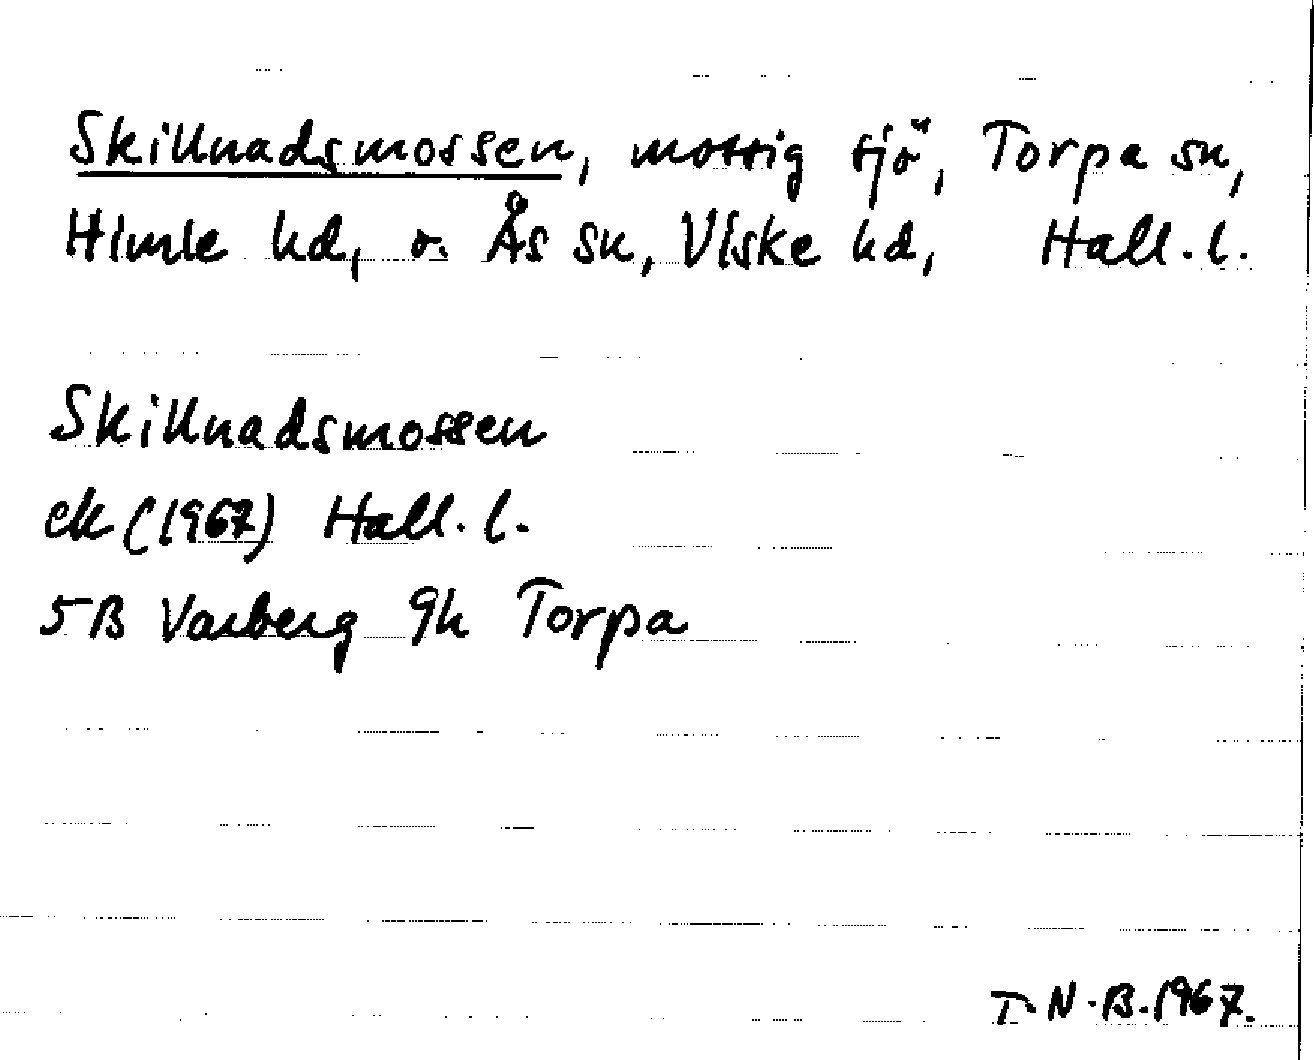 Skillnadsmossen, mossig sjö, Torpa sn,
Himle hd, o. Ås sn, Viske hd, Hall. l.
Skillnadsmossen
ek (1967) Hall. l.
5B Varberg 9h Torpa
N.B. 1967.